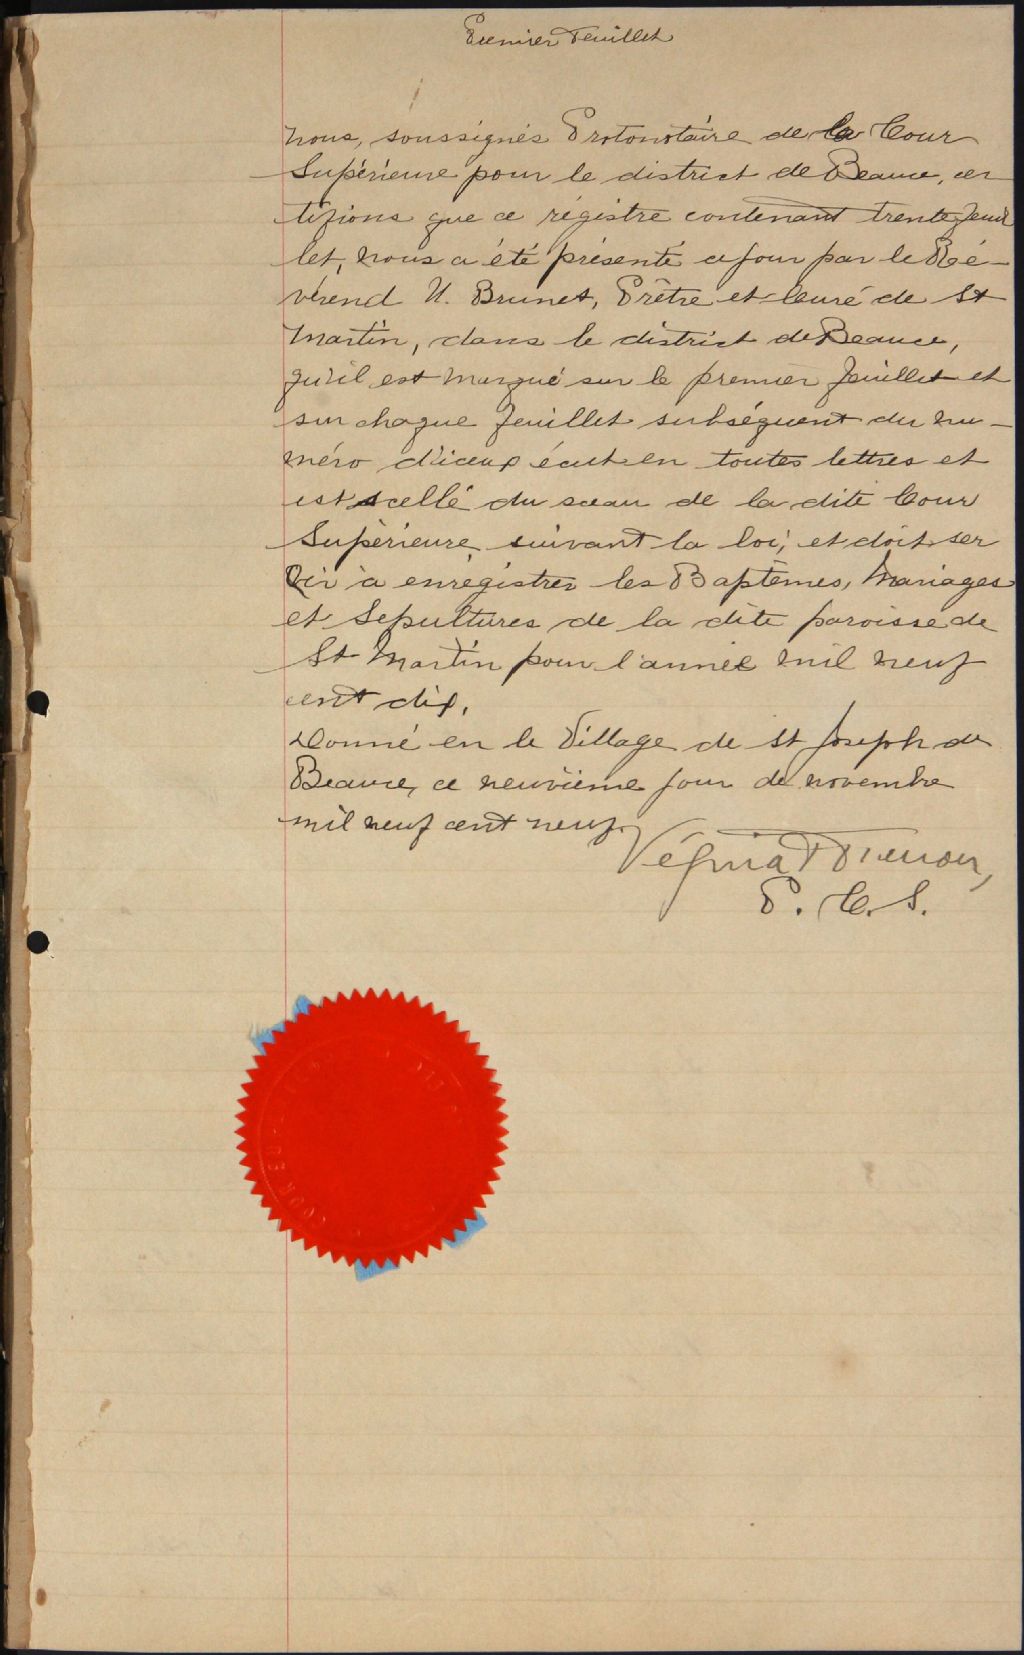 Premier Feuillet
Nous, soussignés Protonotaire de la Cour
Supérieure pour le district de Beauce, cer
tifions que ce régistre contenant trente feuil
let, nous a été présenté ce jour par le Ré-
vérend U. Brunet, Prêtre et Curé de St
Martin, dans le district de Beauce,
qu'il est marqué sur le premier feuillet et
sur chaque feuillet subséquent du nu-
méro d'iceux écrit en toutes lettres et
est scellé du sceau de la dite Cour
Supérieure, suivant la loi, et doit ser
vir à enrégistrer les Baptêmes, Mariages
et Sépultures de la dite paroisse de
St Martin pour l'année mil neuf
cent dix.
Donné en le Village de St Joseph de
Beauce, ce neuvième jour de novembre
mil neuf cent neuf.
P. C. S.
COUR SU